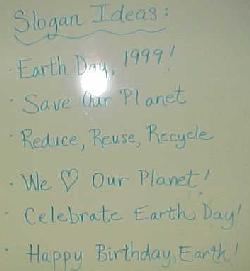 Slogan Ideas:
· Earth Day, 1999!
· Save Our Planet
· Reduce, Reuse, Recycle
· We ♡ Our Planet!
· Celebrate Earth Day!
· Happy Birthday, Earth!